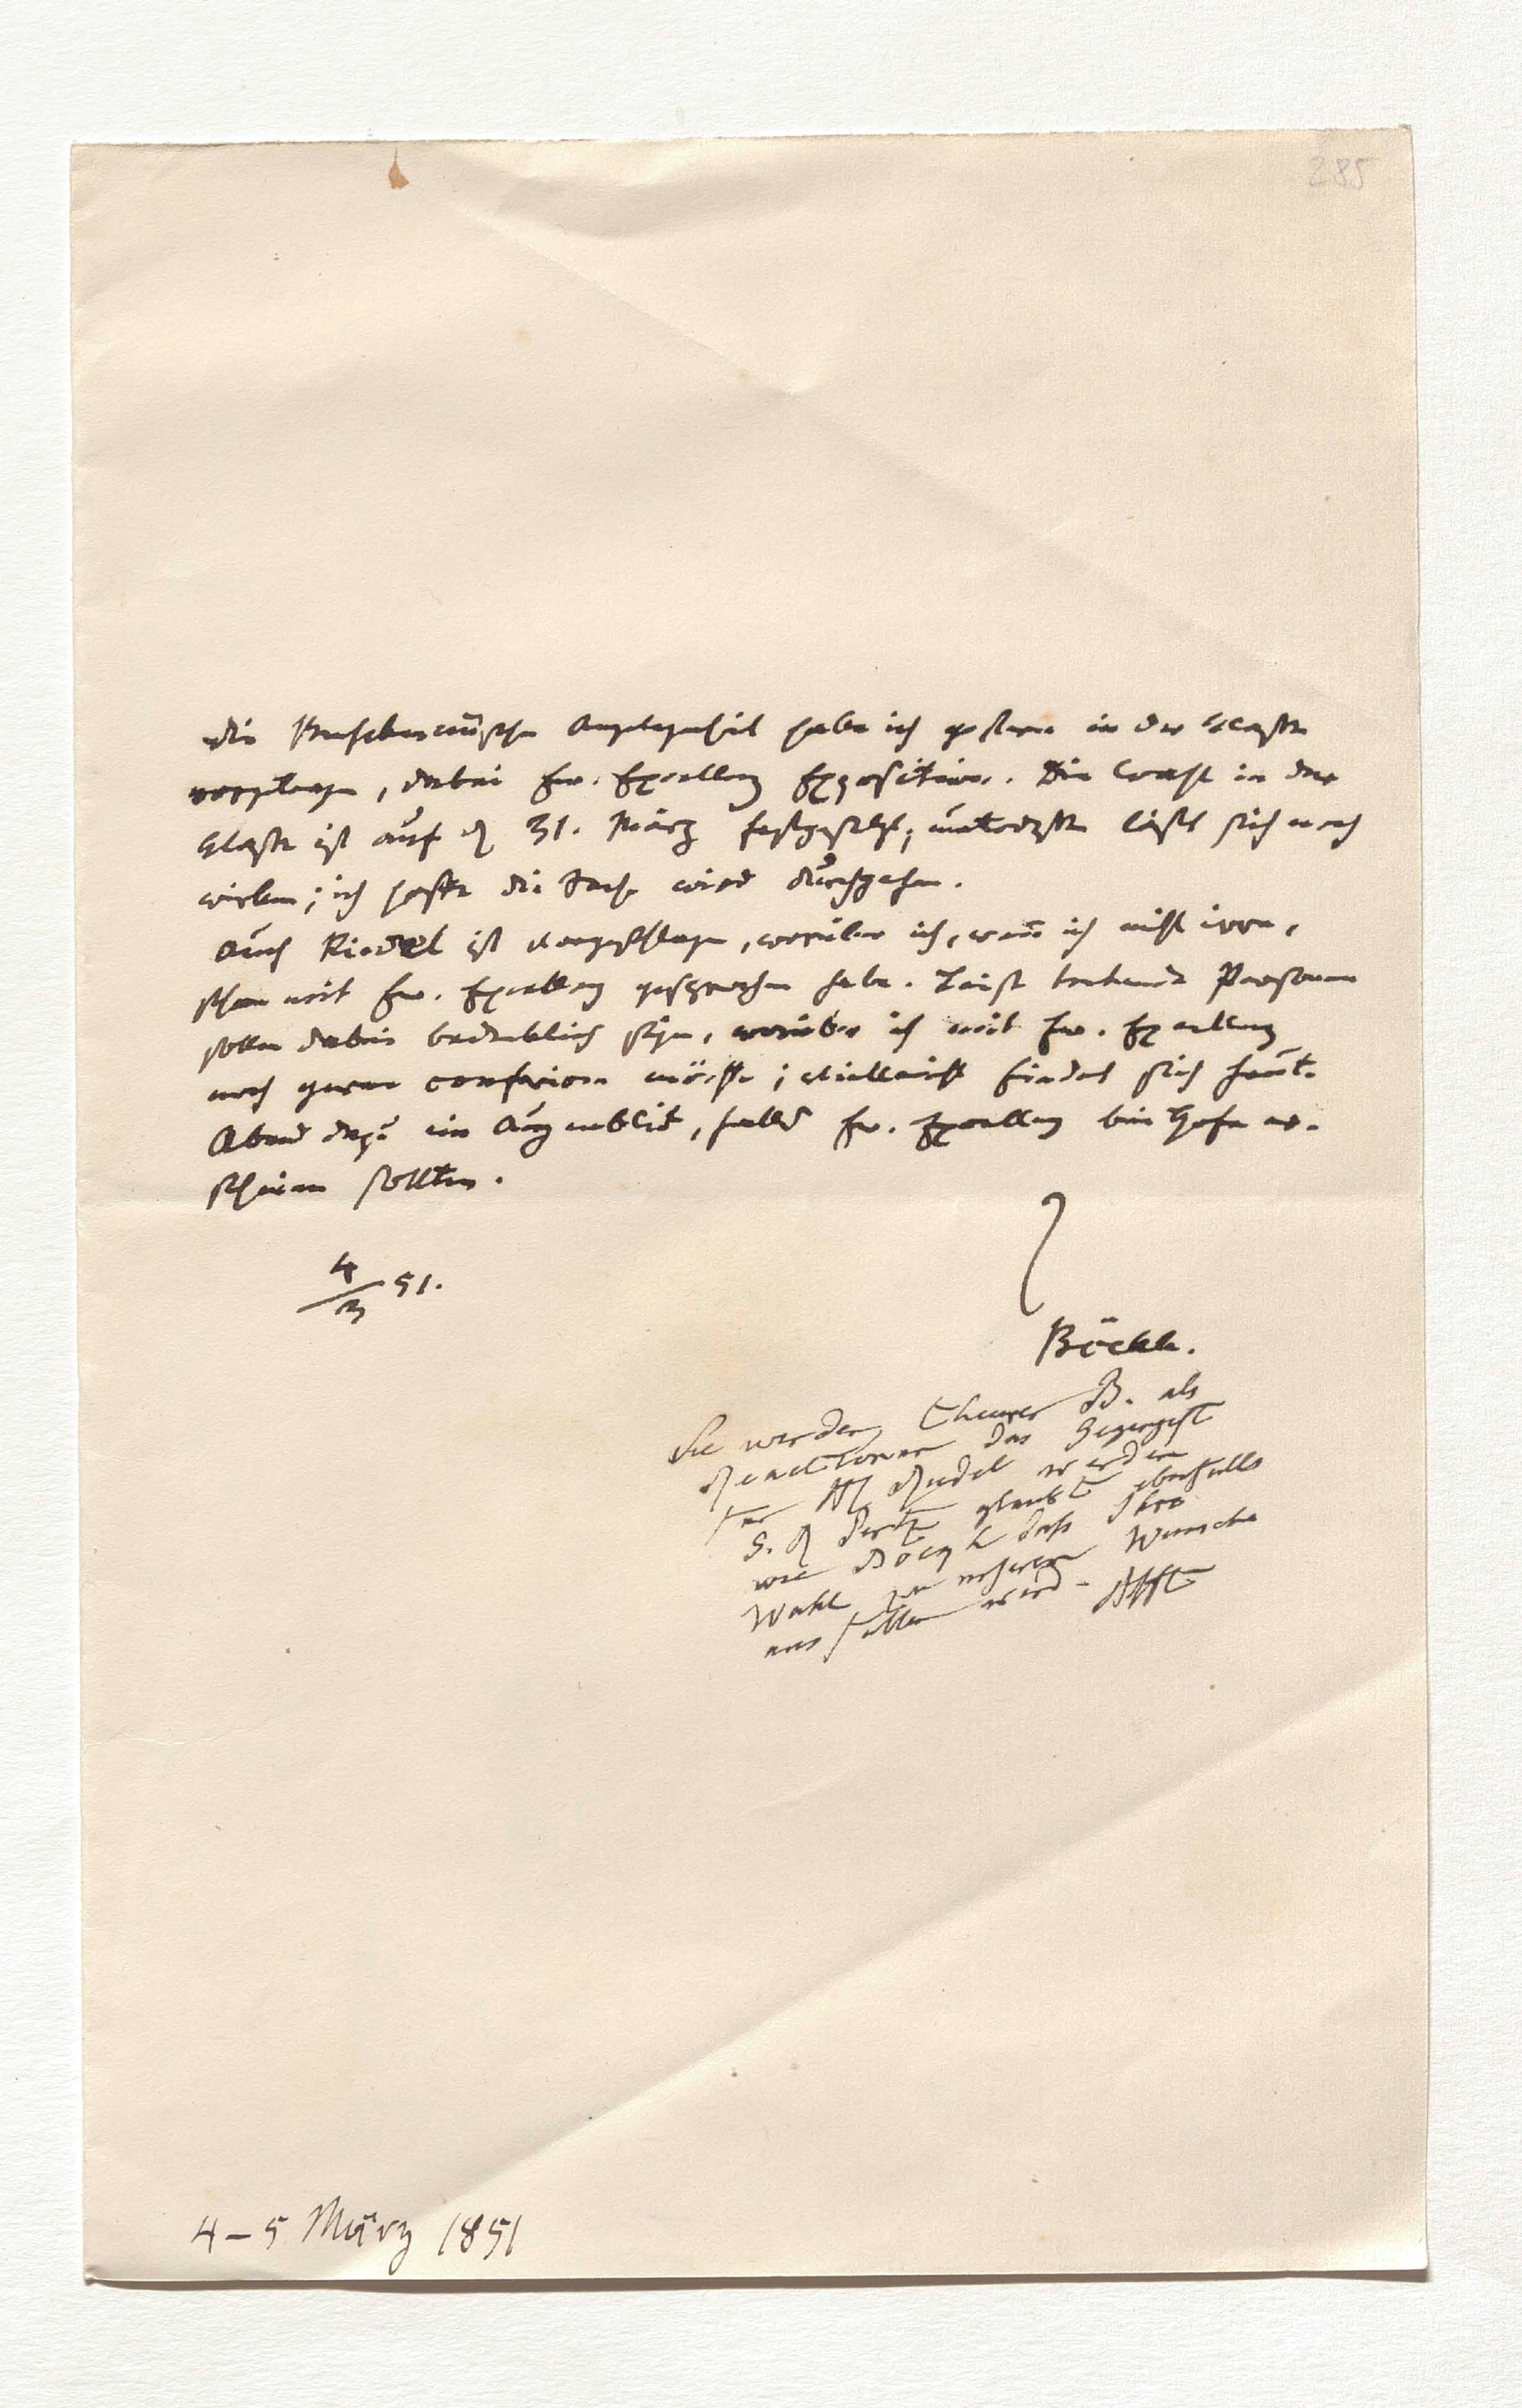 285
Die Buschmannsche Angelegenheit habe ich gestern in der Classe
vorgetragen, dabei Ew. Excellenz Exposition. Die Wahl in der
Classe ist auf d 31. März festgesetzt; unterdessen läßt sich noch
wirken; ich hoffe die Sache wird durchgehen.
Auch Riedel ist vorgeschlagen, worüber ich, wenn ich nicht irre,
schon mit Ew. Excellenz gesprochen habe. Leicht Personen
sollen dabei bedenklich seyn, worüber ich mit Ew. Excellenz
noch gerne conferiren möchte; vielleicht findet sich heute
Abend dazu ein Augenblick, falls Ew. Excellenz bei Hofe er-
scheinen sollten.
4/3 51.
Böckh.
Sie werden, theurer B. als
das Gegengift
für H Riedel werden
S. glaubt ebenfalls
wie Böckh daß Ihre
Wahl zu unserem Wunsche
ausfallen wird. AHft
4-5 März 1851